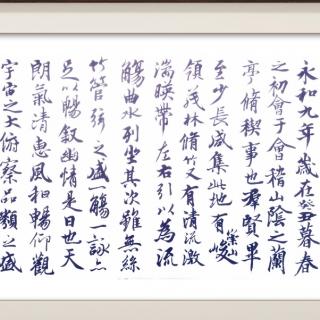 永和九年歲在癸丑暮春
之初會于會稽山陰之蘭
亭脩稧事也羣賢畢
至少長咸集此地有崇山峻
領茂林脩竹又有清流激
湍暎帶左右引以為流
觴曲水列坐其次雖無絲
竹管弦之盛一觴一詠亦
足以暢叙幽情是日也天
朗氣清惠風和暢仰觀
宇宙之大俯察品類之盛